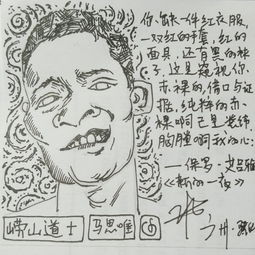 你,第一件红衣服,
一双红的手套,红的
面具,还有黑的袜
子,这是窥视你
赤裸的借口与证
据。纯粹的赤
裸啊已是装饰
胸膛啊我的心:
—保罗·艾吕雅
《新的一夜》
崂山道士
马思唯